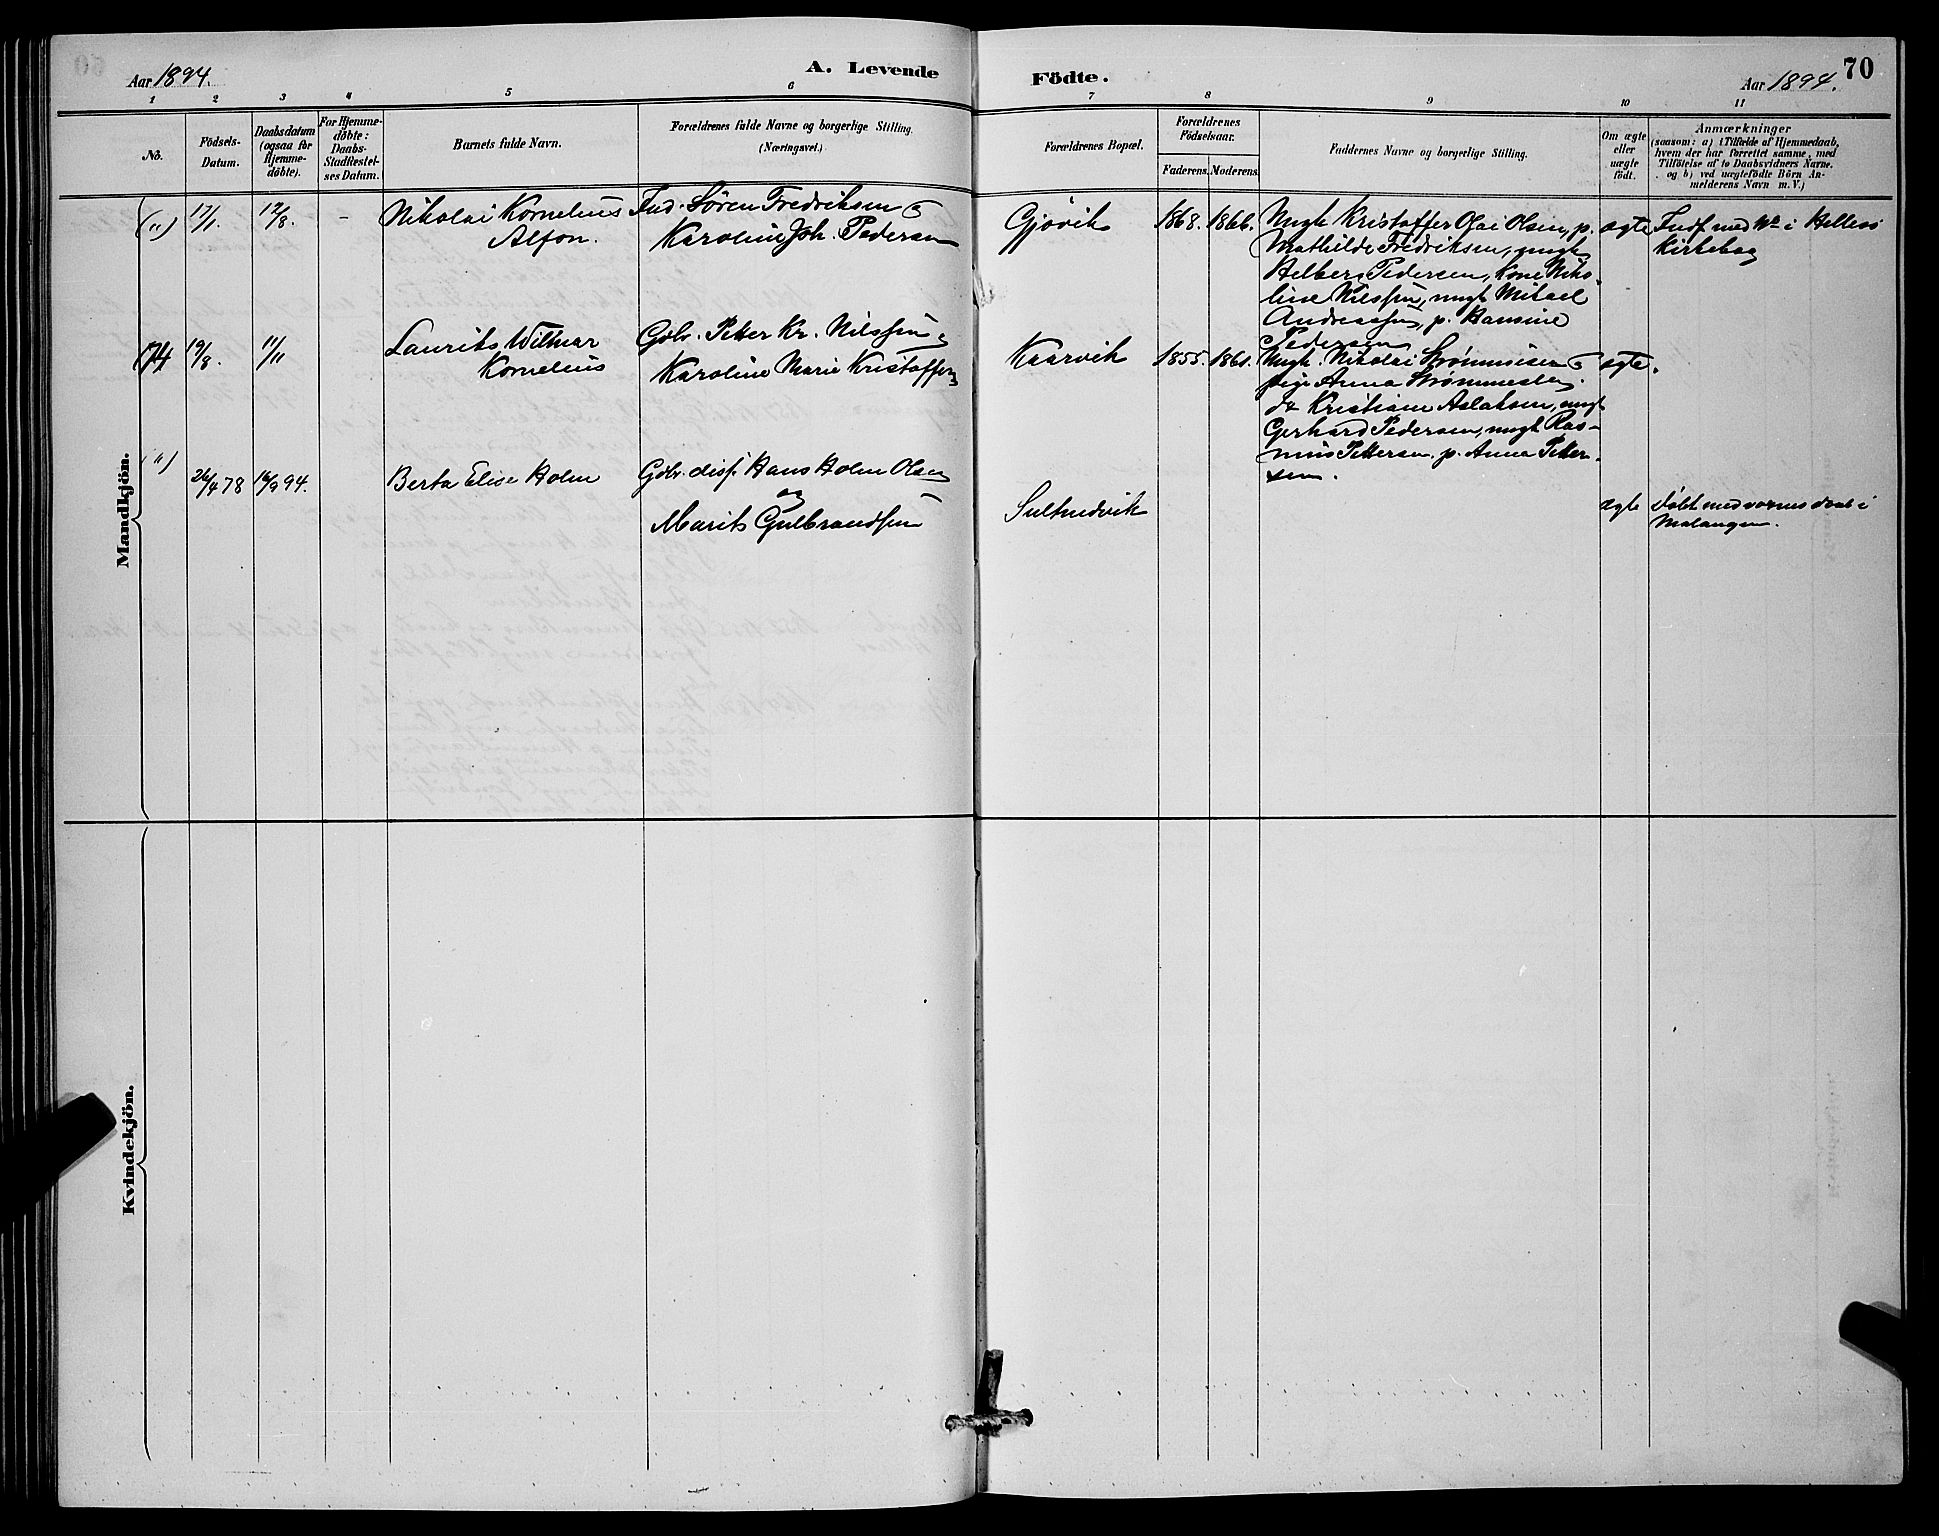 Aar 1894.
A. Levende
Födte.
Aar 1894.
70
1 2 3 4 5 6 7 8 9 10 11
No.
Födsels-
Datum.
Daabsdatum
(ogsaa for
Hjemme-
döbte).
For Hjemme-
döbte:
Daabs-
Stadfæstel-
ses Datum.
Barnets fulde Navn.
Forældrenes fulde Navne og borgerlige Stilling.
(Næringsvei.)
Forældrenes Bopæl.
Forældrenes
Födselsaar.
Faderens. Moderens.
Faddernes Navne og borgerlige Stilling.
Om ægte
eller
uægte
födt.
Anmærkninger
(saasom: a) i Tilfælde af Hjemmedaab,
hvem der har forrettet samme, med
Tilföielse af to Daabsvidners Navne.
og b) ved uægtefödte Börn An-
melderens Navn m. V.)
Mandkjön.
(") 17/1. 12/8. -
Nikolai Kornelius
Alfon.
Ind. Sören Fredriksen &
Karoline Joh. Pedersen
Gjövik
1868. 1866.
Ungk Kristoffer Olai Olsen, p.
Mathilde Fredriksen, ungk
Pedersen, Kone Niko-
line Nilssen, ungk Mikael
Andreassen, p. Hansine
Pedersen
ægte
Indf. med No i Hellesö
Kirkebog
74 19/8. 11/11
Laurits Wilmar
Kornelius
Gbr. Petter Kr. Nilssen &
Karoline Marie Kristoffersen
Kaarvik
1855. 1861.
Ungk. Nikolai &
pige Anna
do Kristian Aslaksen, ungk
Gerhard Pedersen, ungk Ras-
mus Pettersen, p. Anna Petter-
sen.
ægte.
(") 26/4 78 16/9 94.
Berta Elise Holm
Gbr. disp. Hans Holm Olsen
og
Marits Gulbrandsen
Sultindvik
ægte
döbt med voxnes daab i
Malangen.
Kvindekjön.